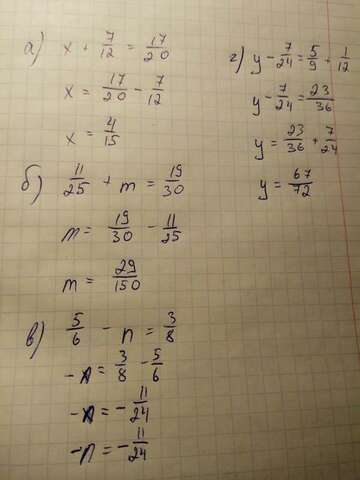 а) x + 7/12 = 17/20
x = 17/20 - 7/12
x = 4/15
б) 11/25 + m = 19/30
m = 19/30 - 11/25
m = 29/150
в) 5/6 - n = 3/8
-n = 3/8 - 5/6
-n = - 11/24
-n = - 11/24
г) y - 7/24 = 5/9 + 1/12
y - 7/24 = 23/36
y = 23/36 + 7/24
y = 67/72